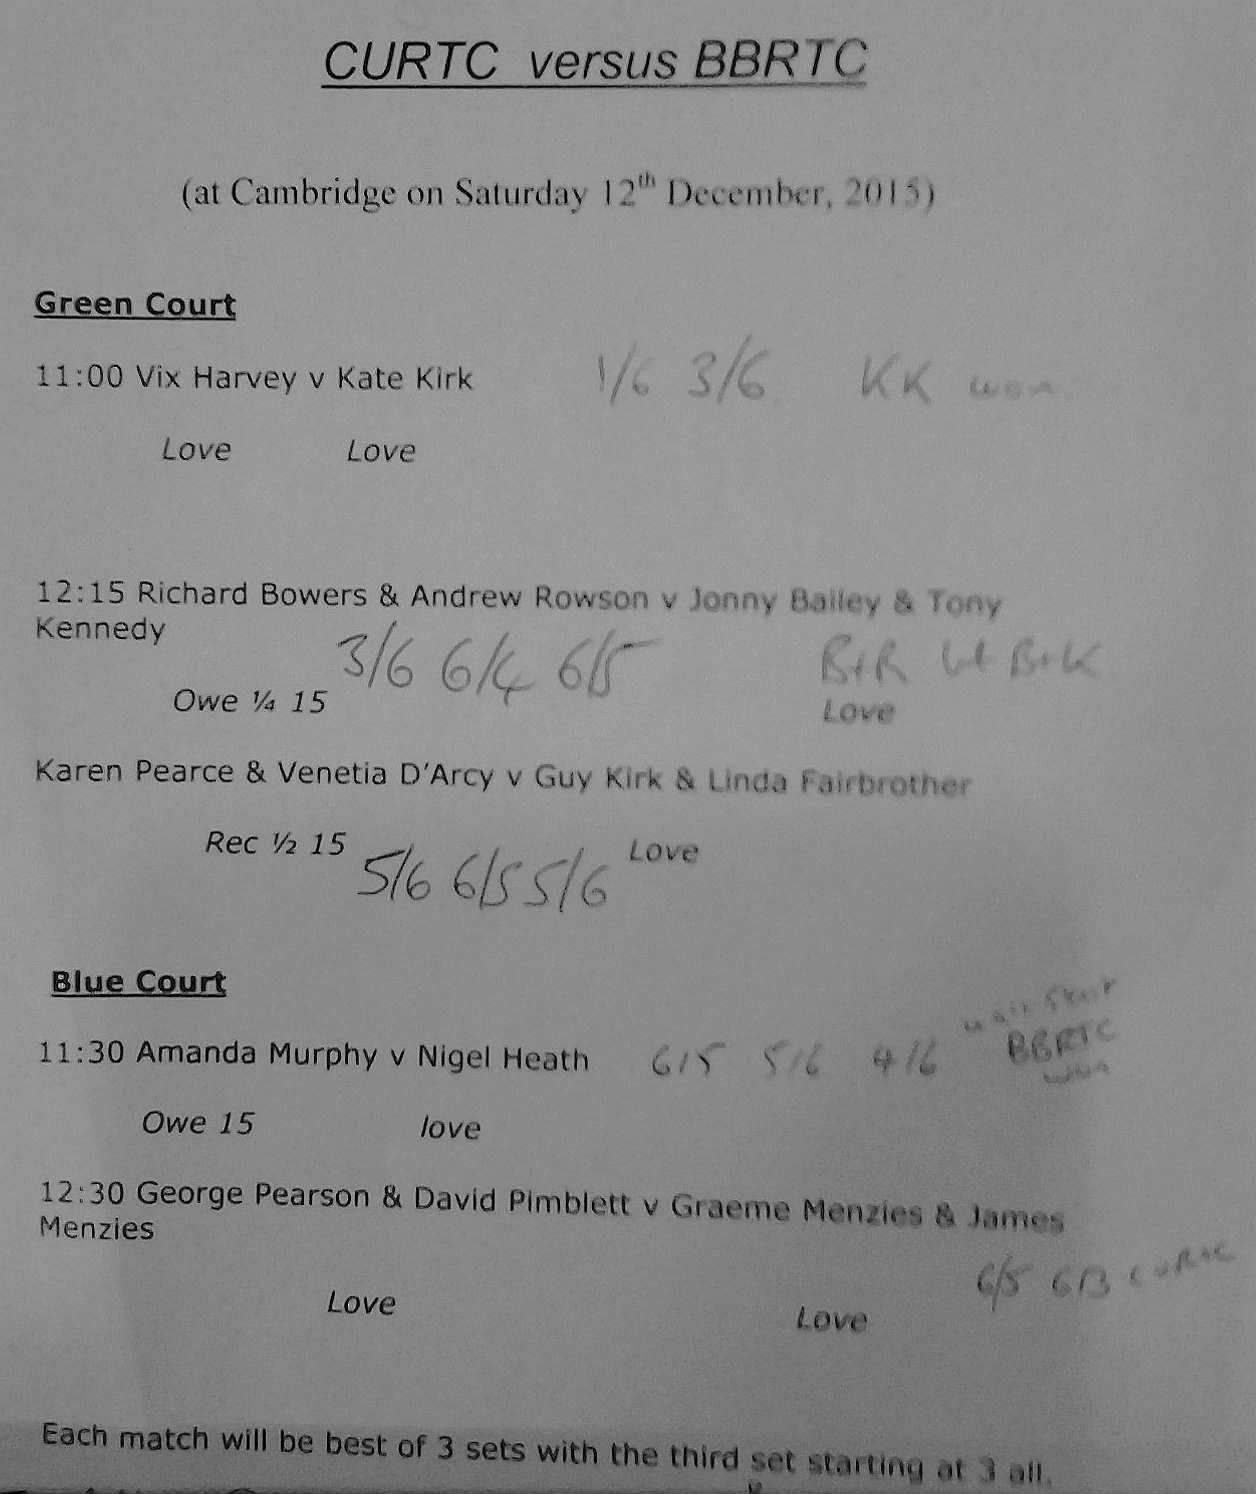 CURTC versus BBRTC
(at Cambridge on Saturday 12th December, 2015)
Green Court
11:00 Vix Harvey v Kate Kirk 1/6 3/6 KK won
Love Love
12:15 Richard Bowers & Andrew Rowson v Jonny Bailey & Tony
Kennedy
3/6 6/4 6/5 B+R bt B+K
Owe ¼ 15 Love
Karen Pearce & Venetia D'Arcy v Guy Kirk & Linda Fairbrother
Rec ½ 15 Love
5/6 6/5 5/6
Blue Court
11:30 Amanda Murphy v Nigel Heath 6/5 5/6 4/6 BBRTC
won
Owe 15 love
12:30 George Pearson & David Pimblett v Graeme Menzies & James
Menzies
6/5 6/3 CURTC
Love Love
Each match will be best of 3 sets with the third set starting at 3 all.